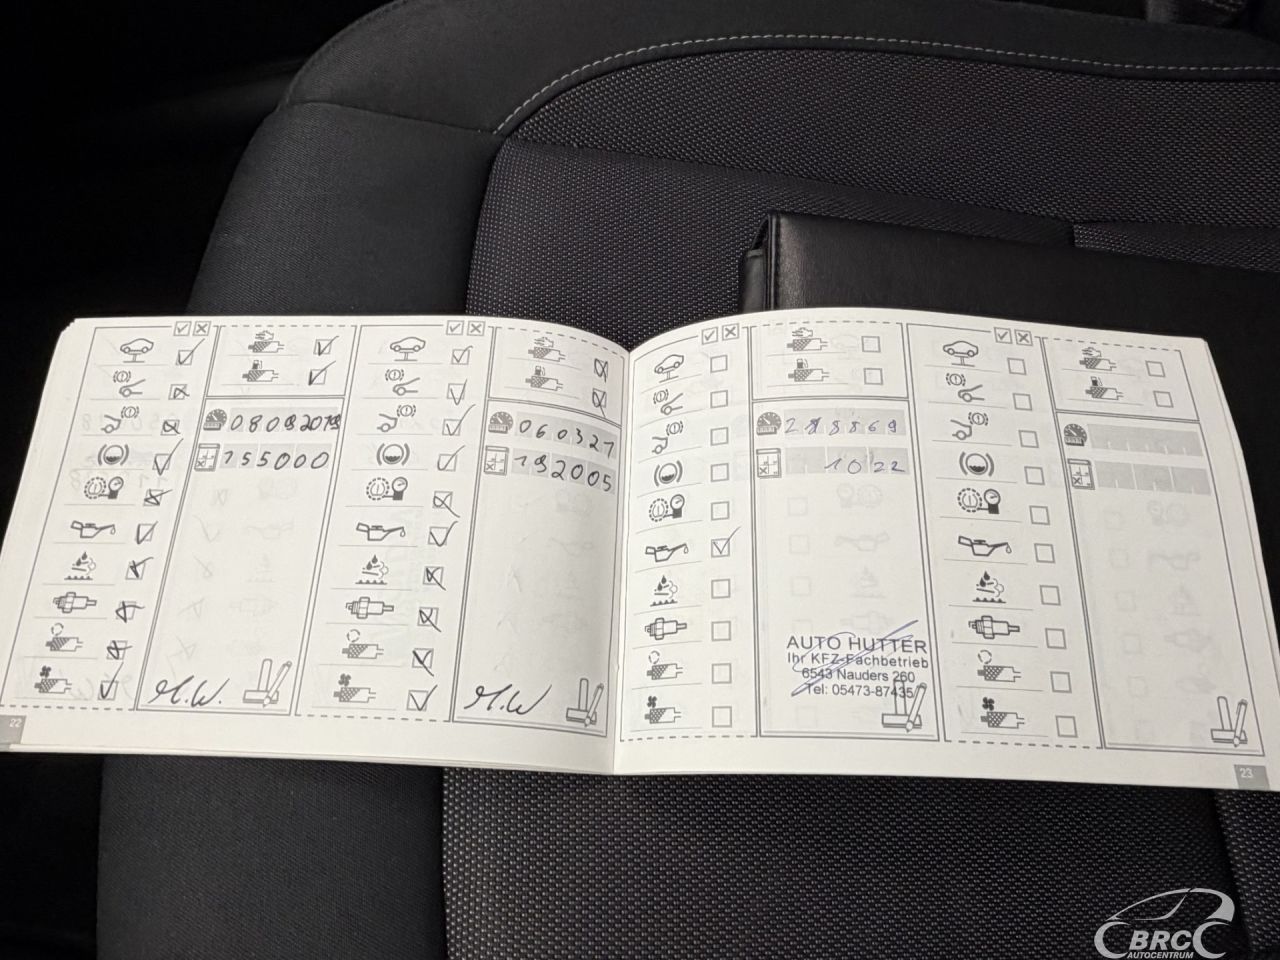 08092019
155000
M.W.
060321
192005
M.W
1022
AUTO HUTTER
Ihr KFZ-Fachbetrieb
6543 Nauders 260
Tel: 05473-87435
22
23
BRC
AUTOCENTRUM